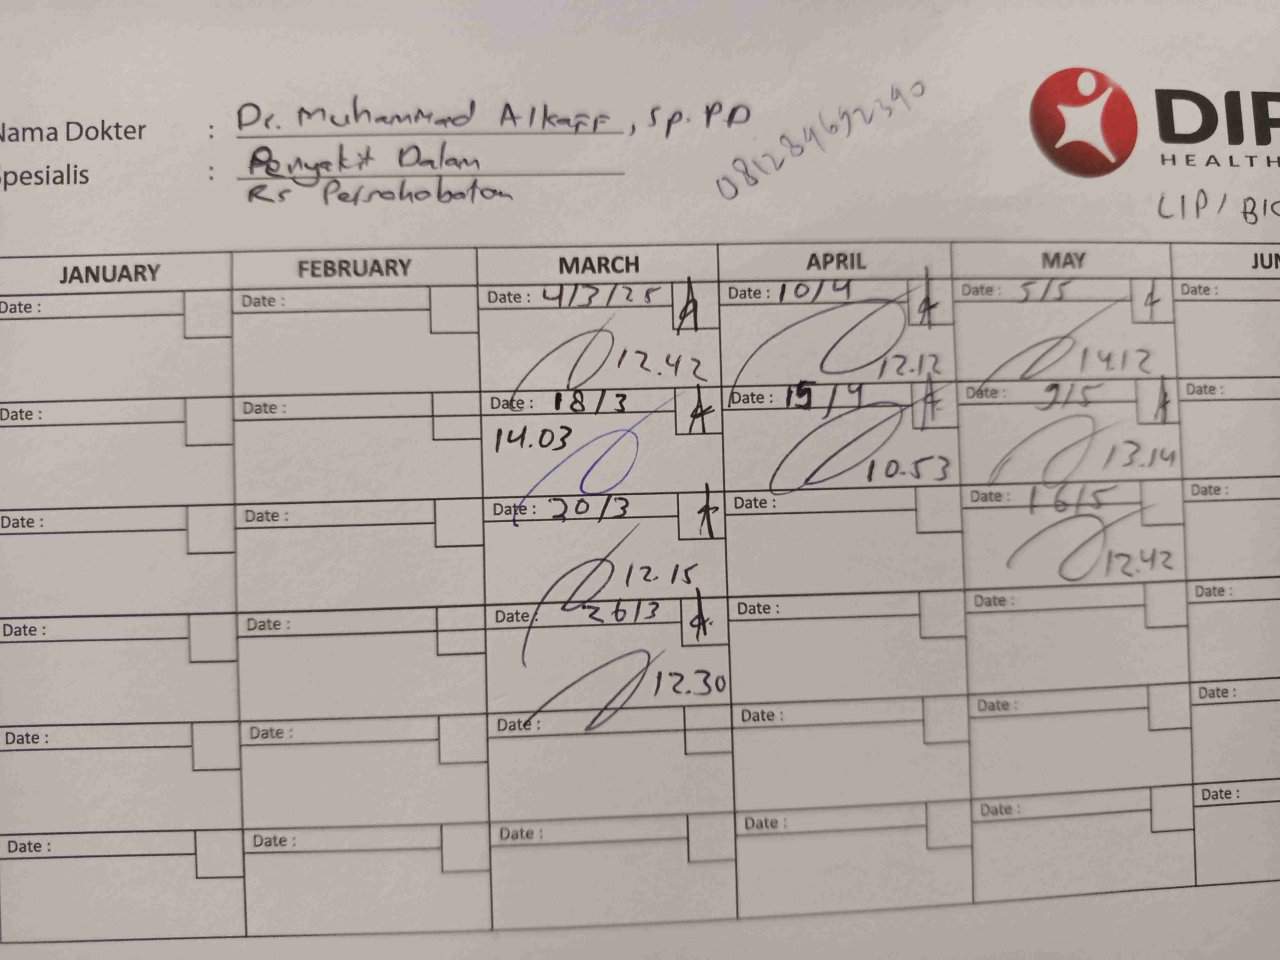 Nama Dokter : Dr. Muhammad Alkaff, Sp. PD
Spesialis : Penyakit Dalam
Rs Persahabatan
081284692390
DIP
HEALTH
LIP / BIO
JANUARY FEBRUARY MARCH APRIL MAY JUN
Date : Date : Date : 4/3/25 Date : 10/4 Date : 5/5 Date :
12.42 12.12 14.12
Date : Date : Date : 18/3 Date : 15/4 Date : 9/5 Date :
14.03 10.53 13.14
Date : Date : Date : 20/3 Date : Date : 16/5 Date :
12.15 12.42
Date : Date : Date : 26/3 Date : Date : Date :
12.30
Date : Date : Date : Date : Date : Date :
Date : Date : Date : Date : Date : Date :